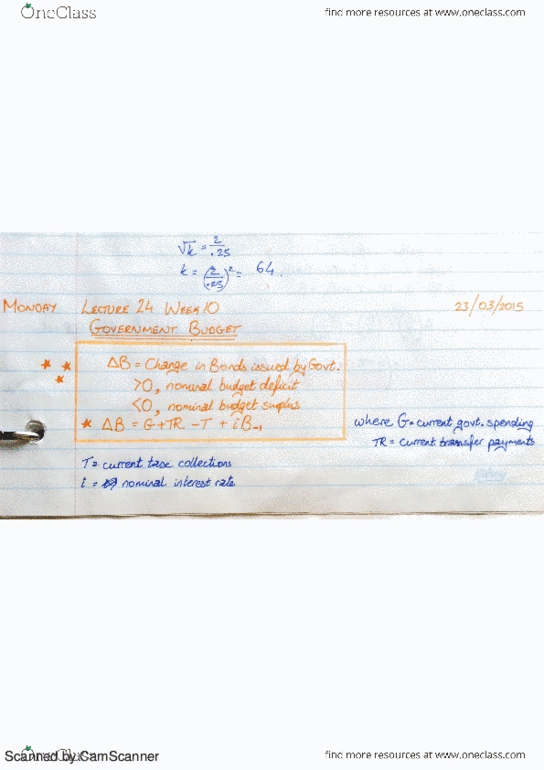 OneClass
find more resources at www.oneclass.com
√k = 2/.25
k = (2/.25)² = 64.
MONDAY LECTURE 24 WEEK 10 23/03/2015
GOVERNMENT BUDGET
ΔB = Change in Bonds issued by Govt.
>0, nominal budget deficit
<0, nominal budget surplus
* ΔB = G+TR -T + iB-1
where G = current govt. spending
TR = current transfer payments
T = current taxe collections
i = nominal interest rate
Scanned by CamScanner
OneClass
find more resources at www.oneclass.com